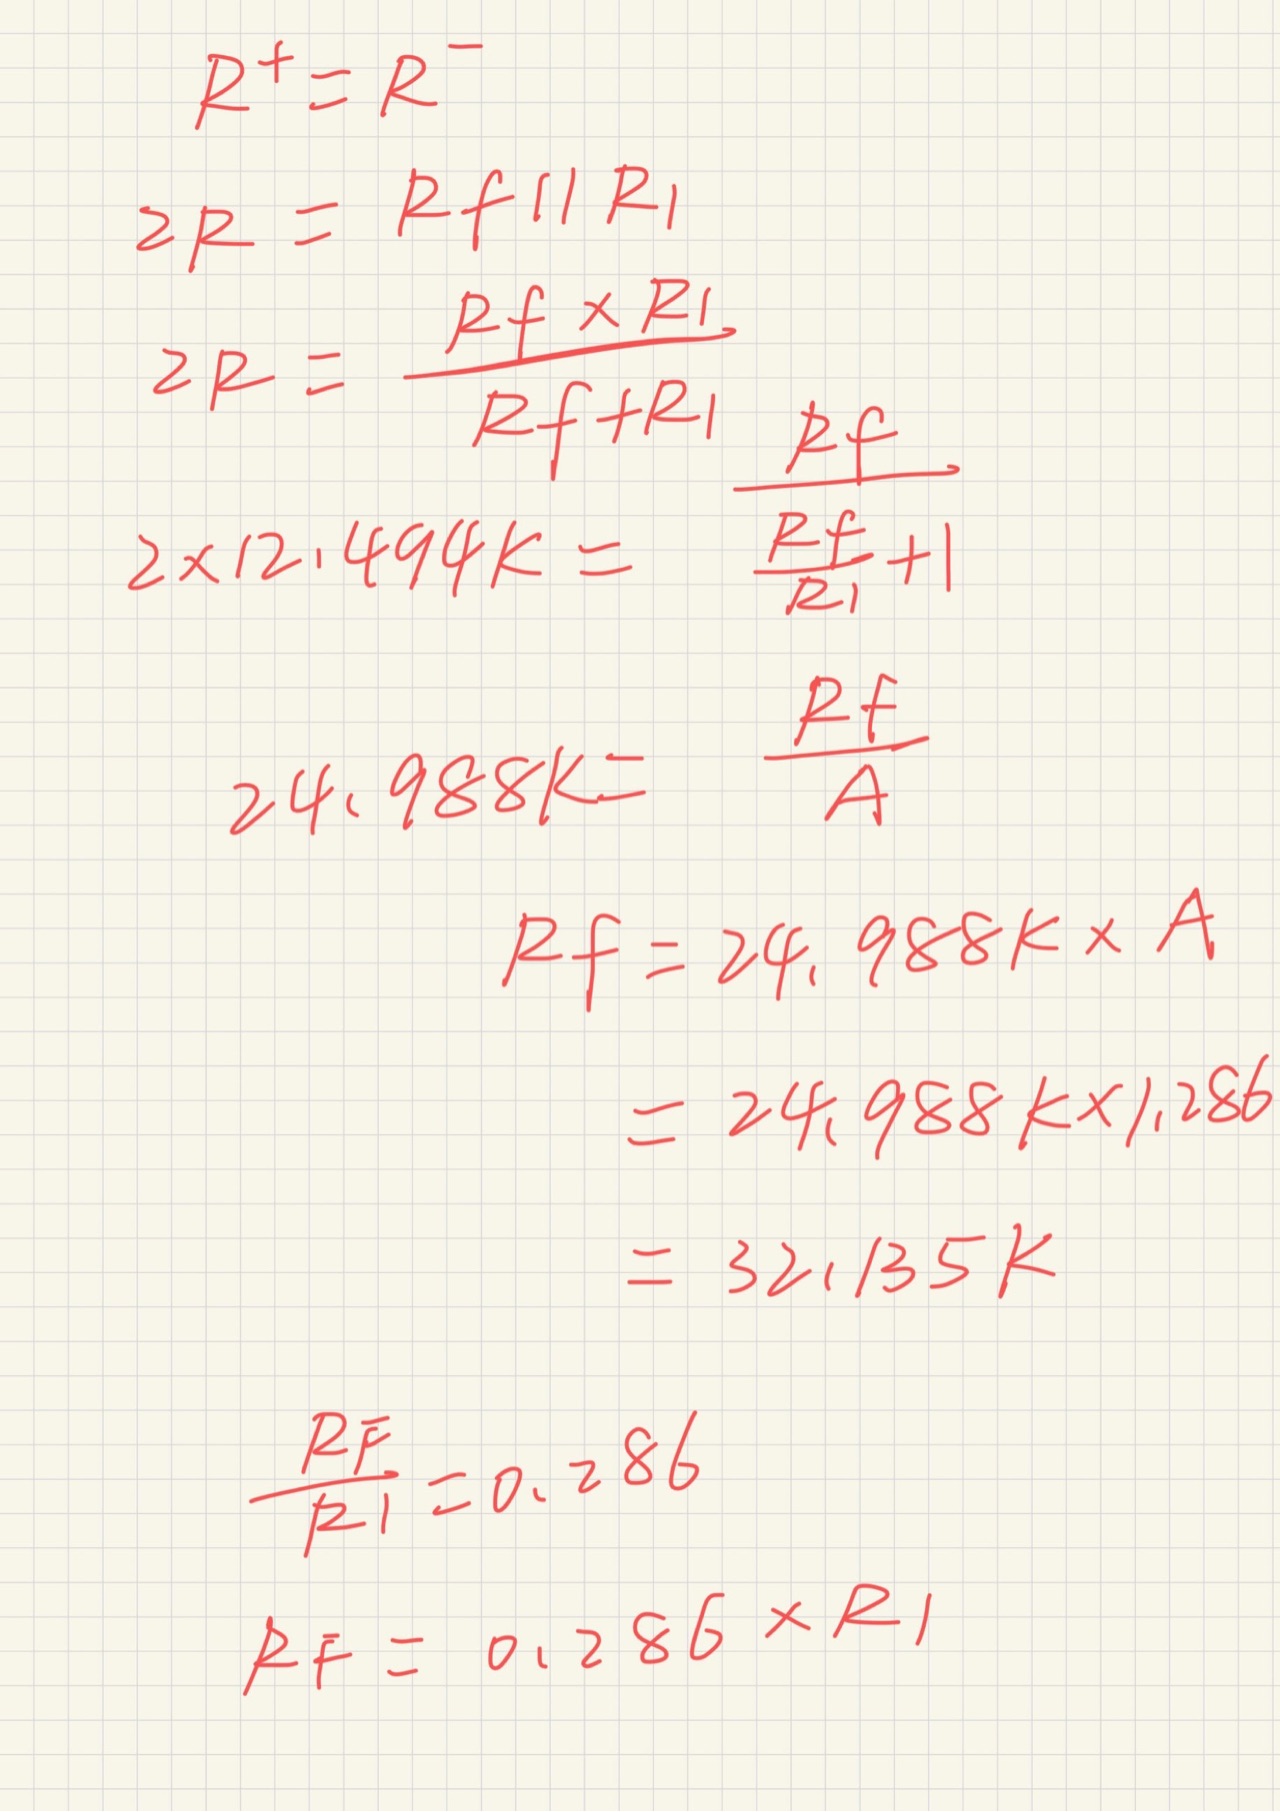 R⁺ = R⁻
2R = Rf || R1
2R = (Rf × R1) / (Rf + R1)
2×12.494K = Rf / (Rf/R1 + 1)
24.988K = Rf / A
Rf = 24.988K × A
= 24.988K × 1.286
= 32.135K
RF / R1 = 0.286
RF = 0.286 × R1